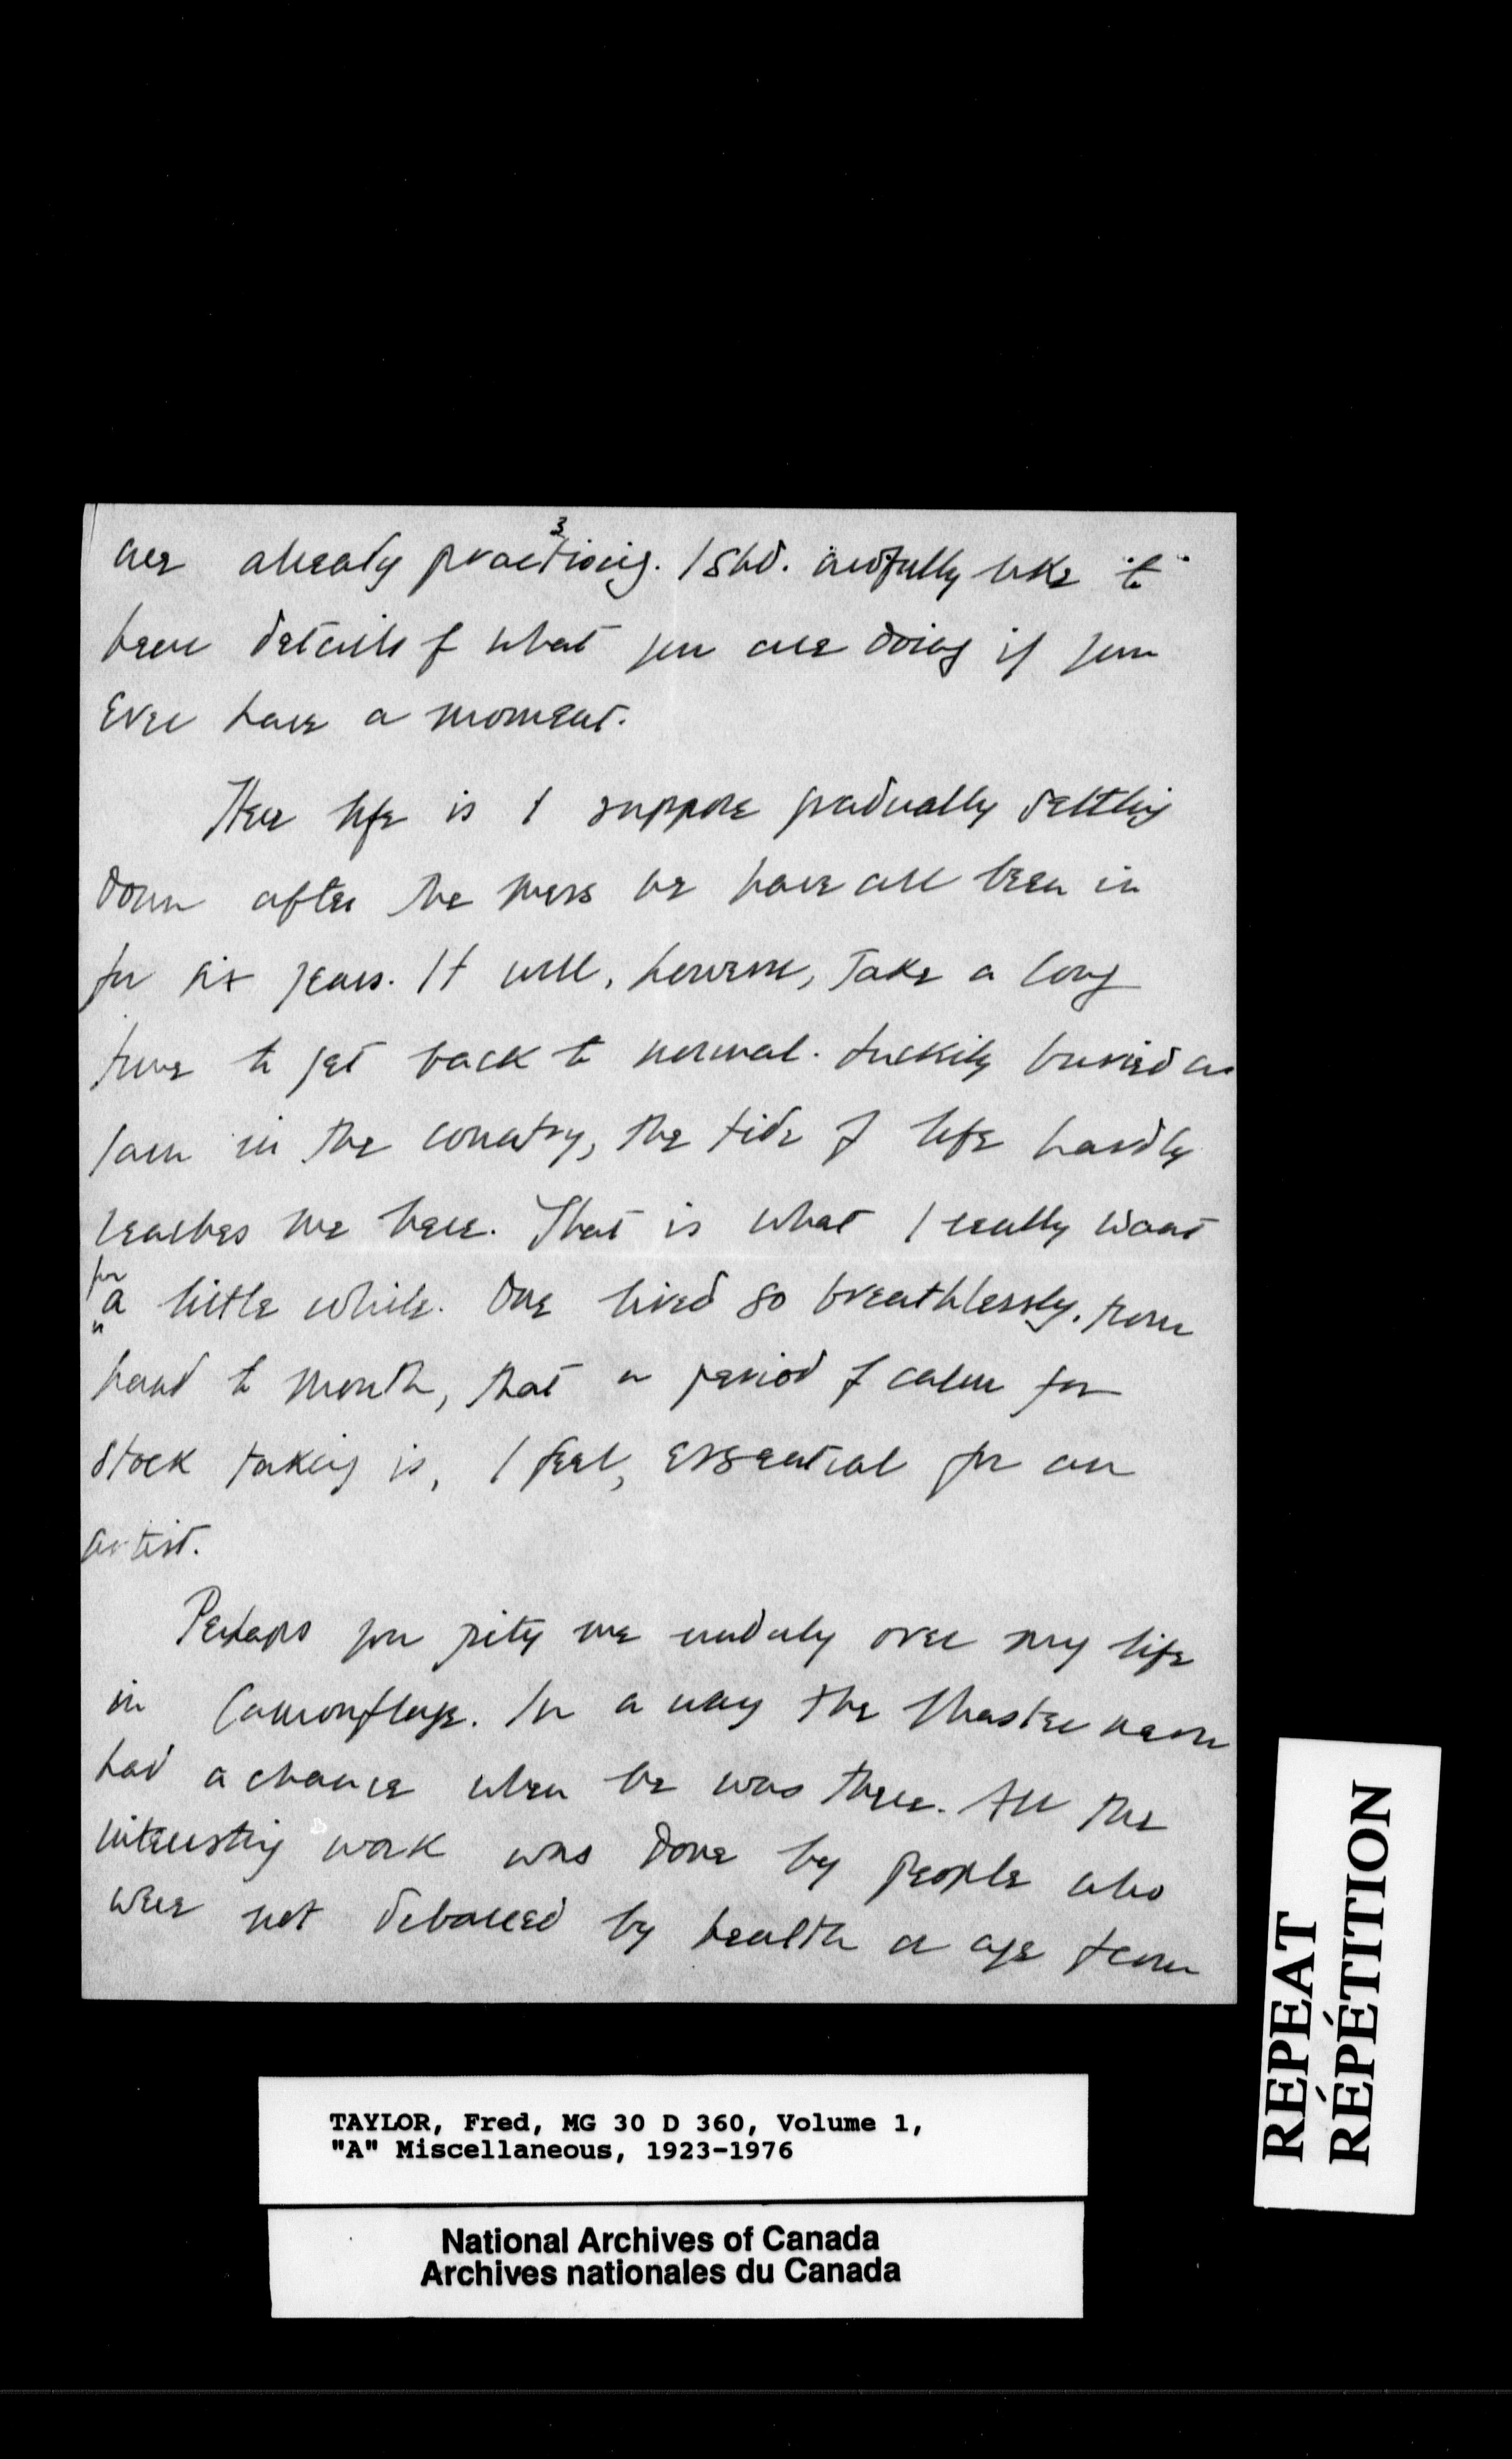 3
are already practising. I shd. awfully like to
hear details of what you are doing if you
ever have a moment.
Here life is I suppose gradually settling
down after the mess we have all been in
for six years. It will, however, take a long
time to get back to normal. Luckily buried as
I am in the country, the tide of life hardly
reaches me here. That is what I really want
for
a little while. One lived so breathlessly, from
hand to mouth, that a period of calm for
stock taking is, I feel, essential for an
artist.
Perhaps you pity me unduly over my life
in Camouflage. In a way the Master never
had a chance when he was there. All the
interesting work was done by people who
were not debarred by health or age from
TAYLOR, Fred, MG 30 D 360, Volume 1,
"A" Miscellaneous, 1923-1976
National Archives of Canada
Archives nationales du Canada
REPEAT
RÉPÉTITION